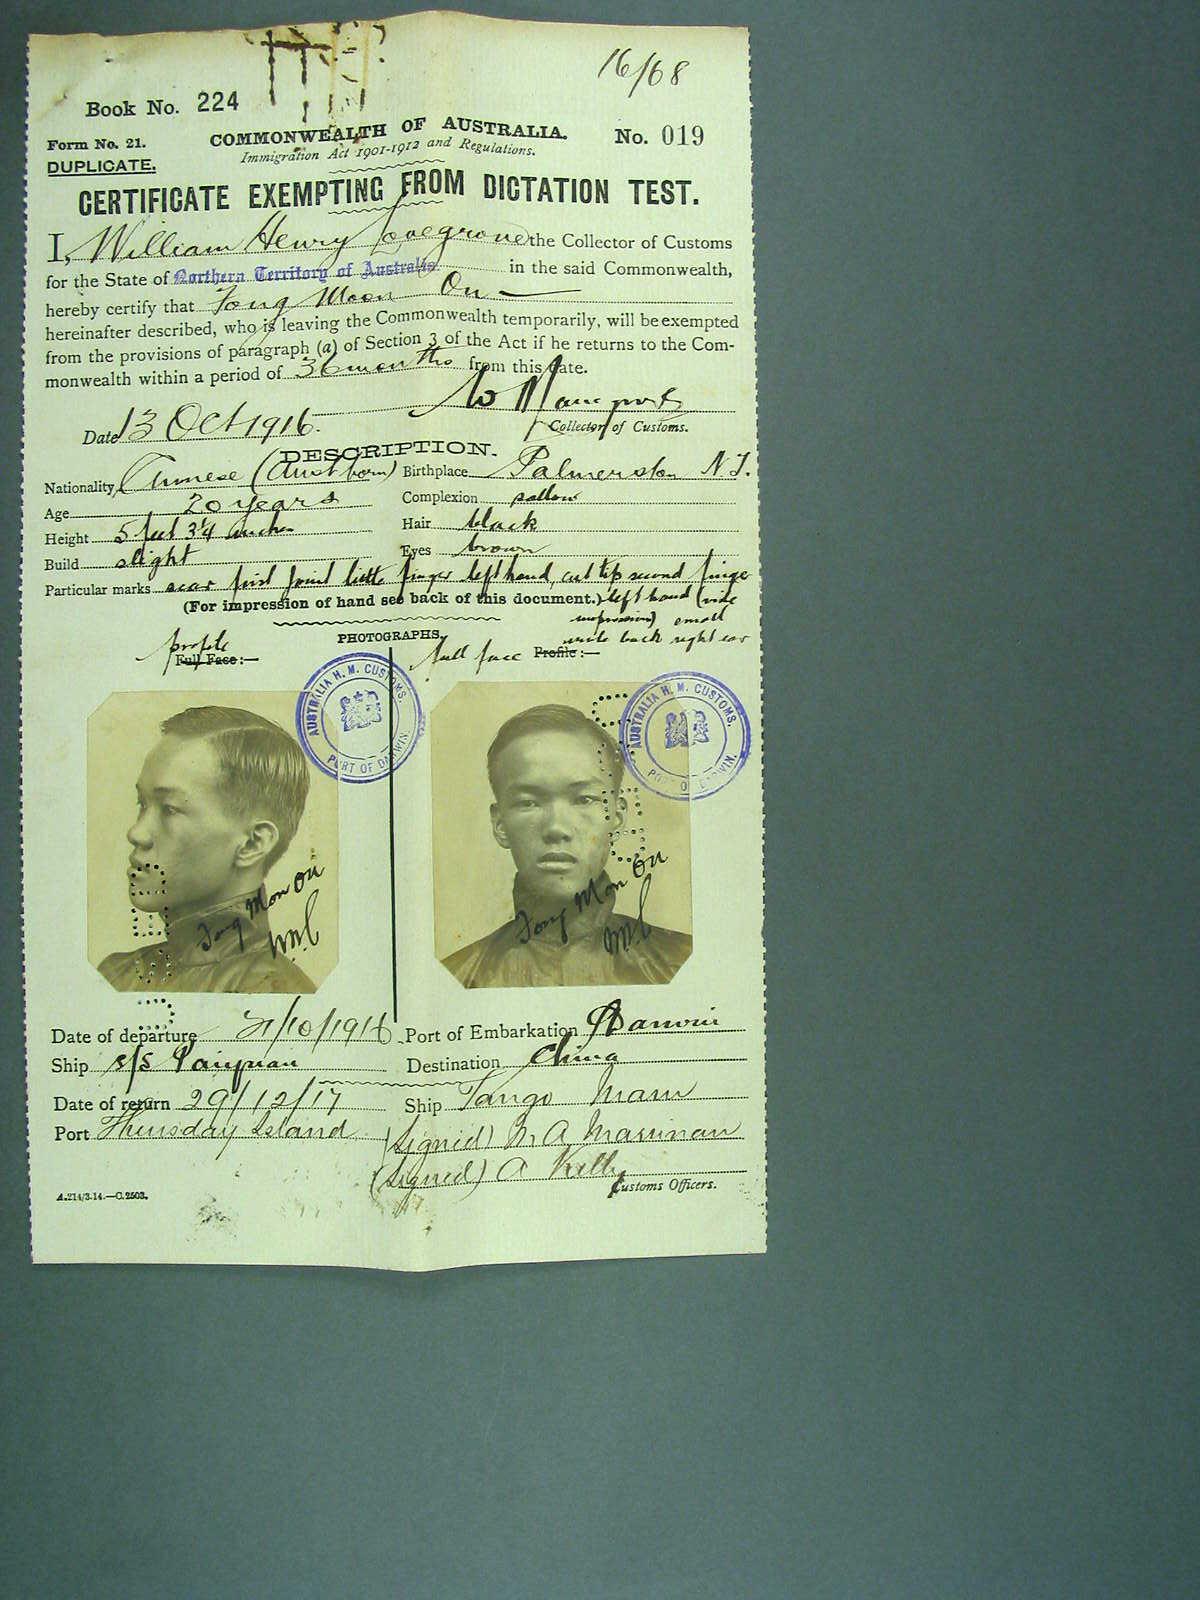 16/68
Book No. 224
Form No. 21. COMMONWEALTH OF AUSTRALIA. No. 019
DUPLICATE. Immigration Act 1901-1912 and Regulations.
CERTIFICATE EXEMPTING FROM DICTATION TEST.
I, William Henry Lovegrove the Collector of Customs
for the State of Northern Territory of Australia in the said Commonwealth,
hereby certify that Fong Moon On
hereinafter described, who is leaving the Commonwealth temporarily, will be exempted
from the provisions of paragraph (a) of Section 3 of the Act if he returns to the Com-
monwealth within a period of 36 months from this date.
Date 13 Oct 1916.
Collector of Customs.
DESCRIPTION.
Nationality Chinese (Aust born) Birthplace Palmerston N.T.
Age 20 years Complexion sallow
Height 5 feet 3 1/4 inches Hair black
Build slight Eyes brown
Particular marks scar first joint little finger left hand, cut tip second finger
(For impression of hand see back of this document.) left hand (vide
impression) small
back right ear
PHOTOGRAPHS.
profile full face
Full Face:— Profile:—
AUSTRALIA H. M. CUSTOMS. PORT OF DARWIN.
AUSTRALIA H. M. CUSTOMS. PORT OF DARWIN.
Fong Mon On
Fong Mon On
Date of departure 21/10/1916 Port of Embarkation Darwin
Ship s/s Taiyuan Destination China
Date of return 29/12/17 Ship Tango Maru
Port Thursday Island (Signed)
(Signed) A Kelly
Customs Officers.
A.214/3.14.—C.2503.